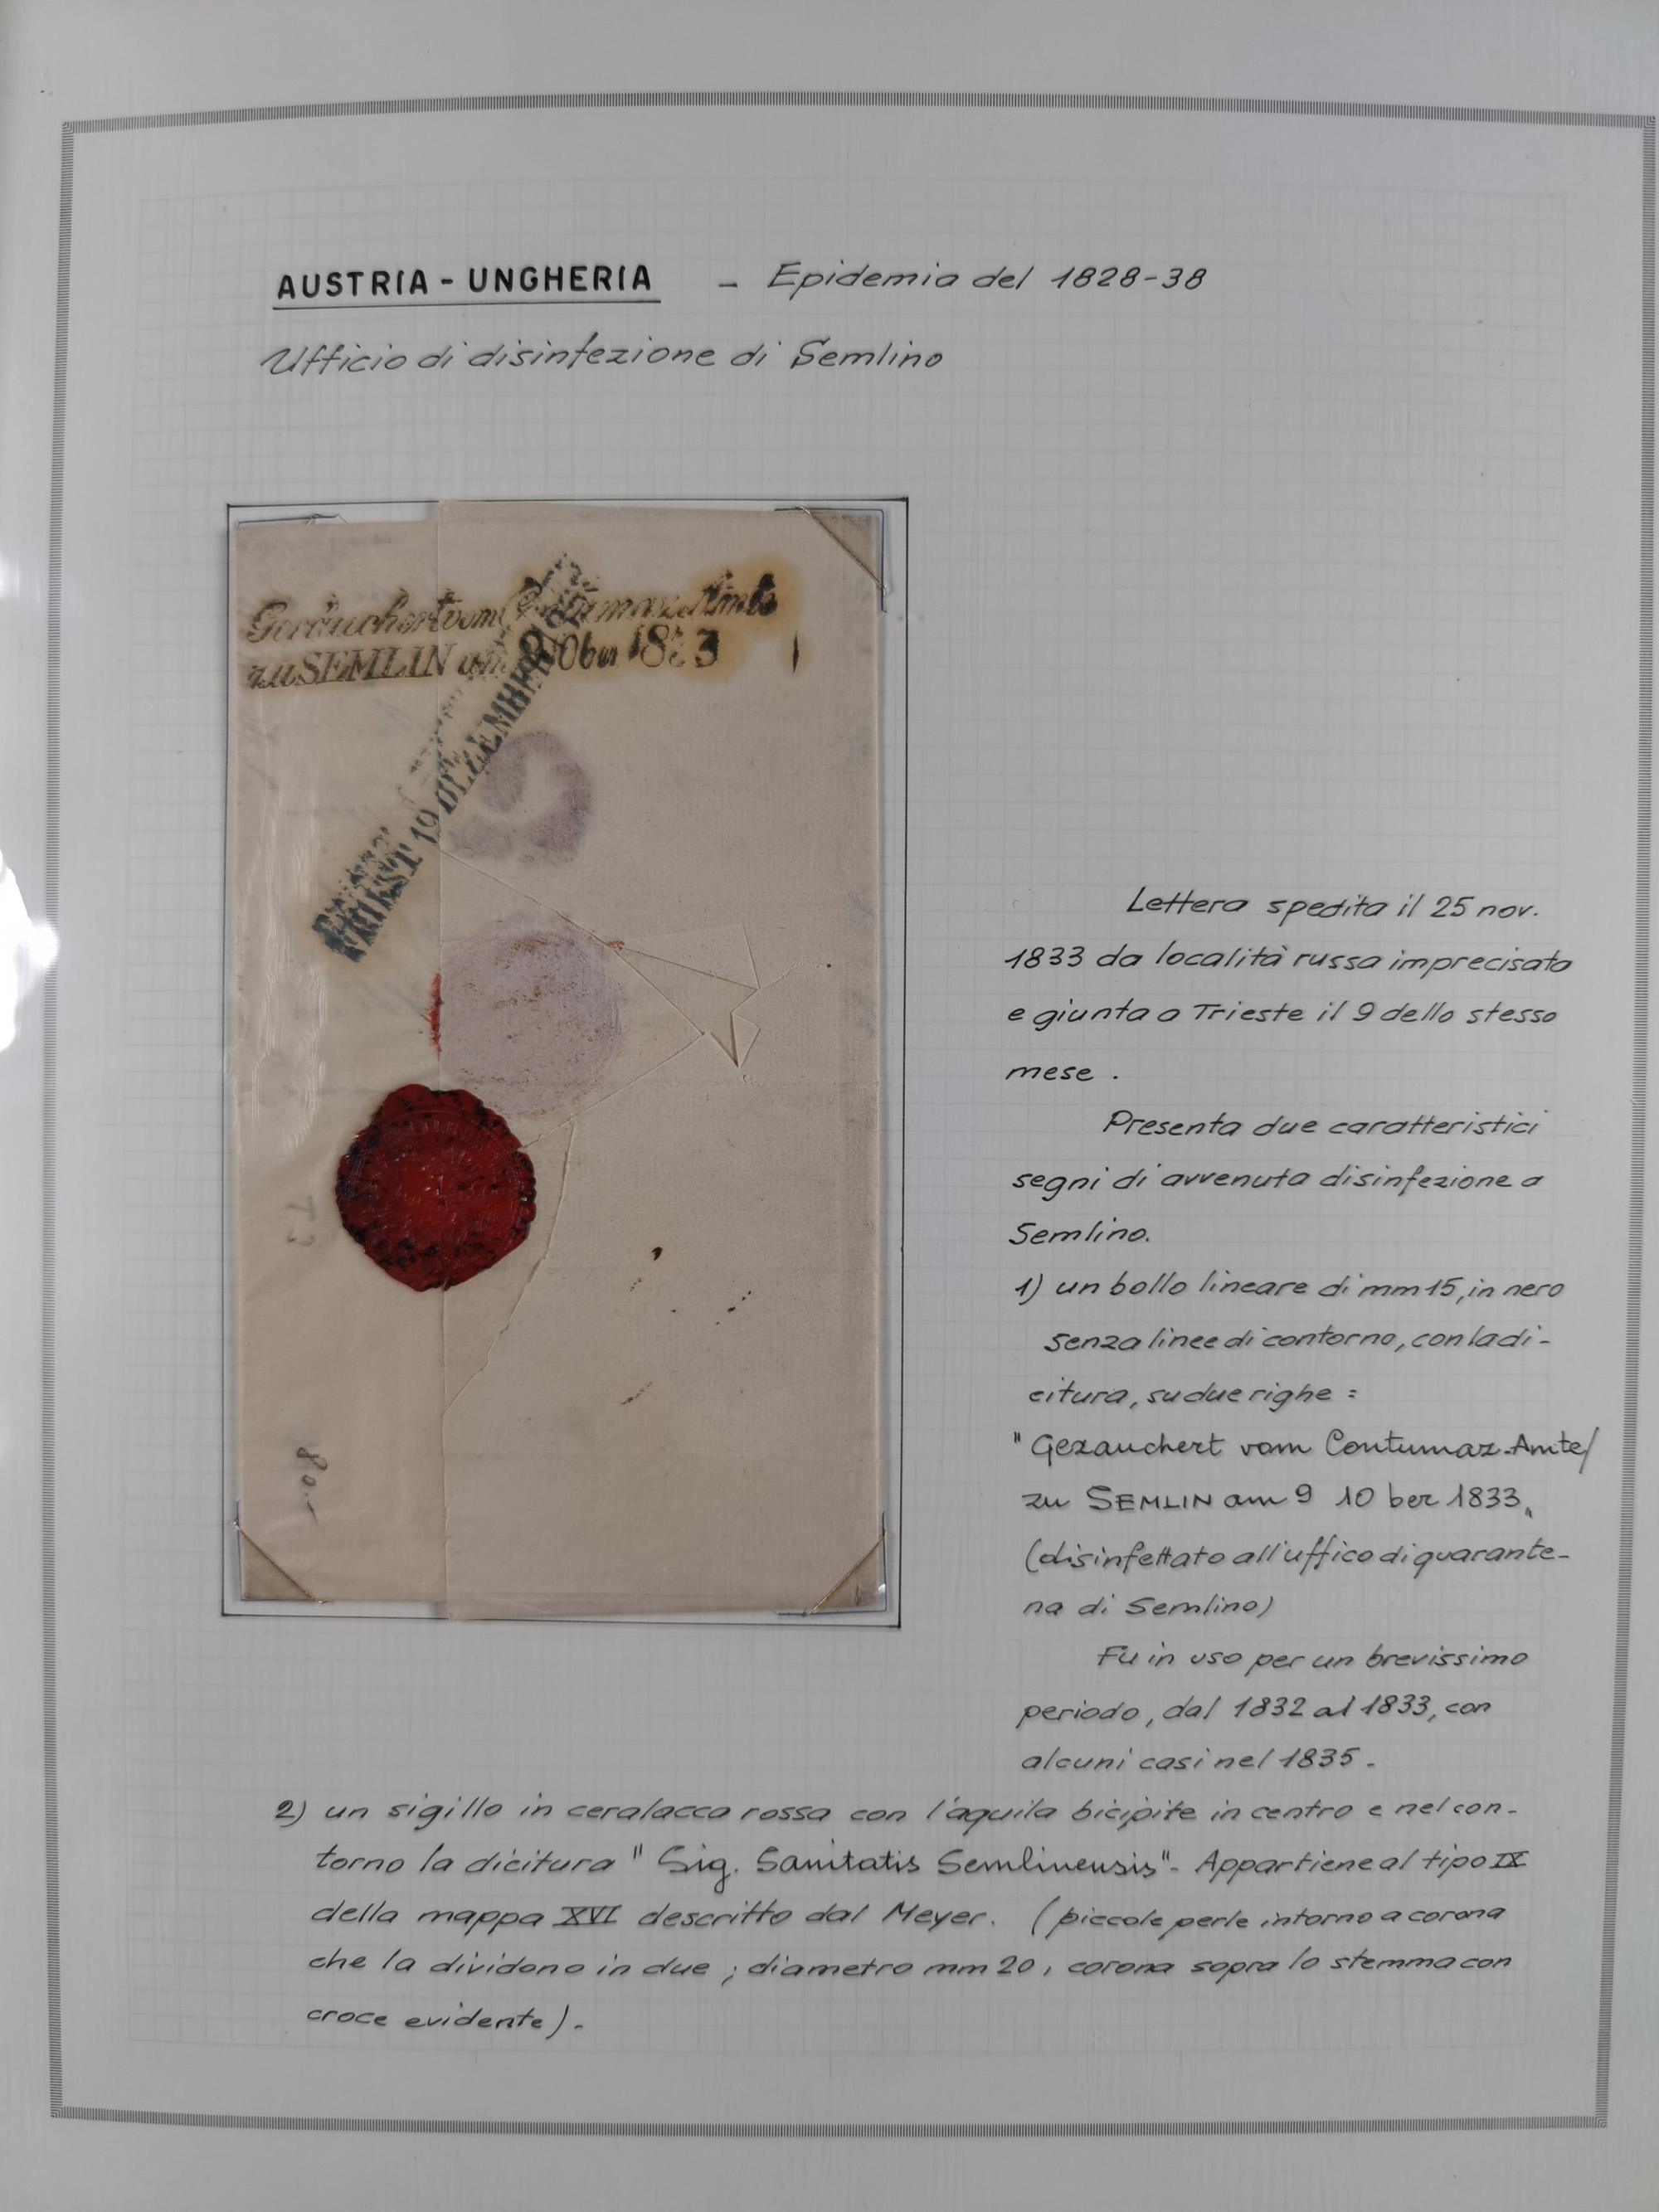 AUSTRIA - UNGHERIA - Epidemia del 1828-38
Ufficio di disinfezione di Semlino
Geräuchert vom Contumaz Amte
zu SEMLIN am 9 10ber 1833
TRIEST 19 DEZEMBER
80-
Lettera spedita il 25 nov.
1833 da località russa imprecisata
e giunta a Trieste il 9 dello stesso
mese .
Presenta due caratteristici
segni di avvenuta disinfezione a
Semlino.
1) un bollo lineare di mm 15, in nero
senza linee di contorno, con la di-
citura, su due righe :
"Gerauchert vom Contumaz-Amte/
zu SEMLIN am 9 10 ber 1833"
(disinfettato all'uffico di quarante-
na di Semlino)
Fu in uso per un brevissimo
periodo, dal 1832 al 1833, con
alcuni casi nel 1835 -
2) un sigillo in ceralacca rossa con l'aquila bicipite in centro e nel con-
torno la dicitura "Sig. Sanitatis Semlinensis"- Appartiene al tipo IX
della mappa XVI descritto dal Meyer. (piccole perle intorno a corona
che la dividono in due ; diametro mm 20, corona sopra lo stemma con
croce evidente).-